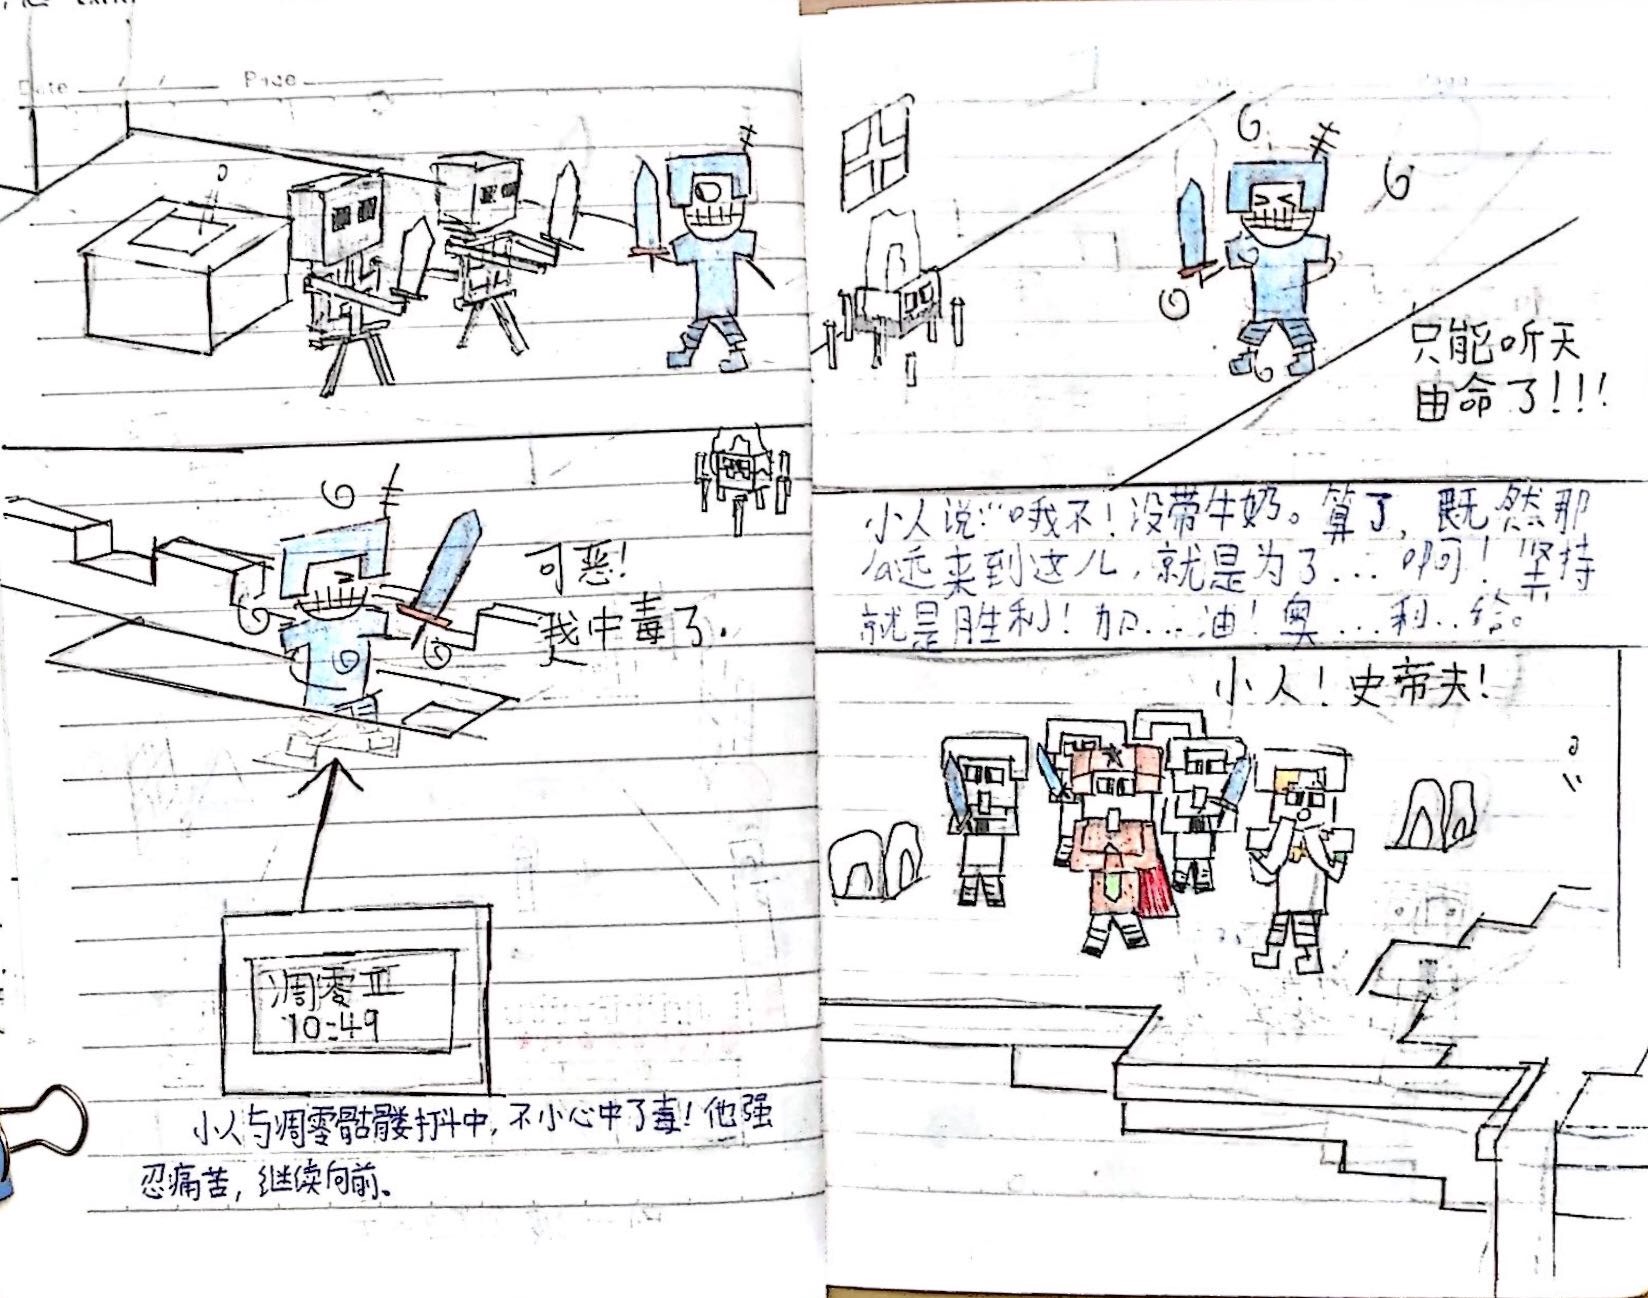 Date / / Page
可恶!
我中毒了.
凋零II
10:49
小人与凋零骷髅打斗中,不小心中了毒!他强
忍痛苦,继续向前。
只能听天
由命了!!!
小人说:“哦不!没带牛奶。算了,既然那
么远来到这儿,就是为了...啊!坚持
就是胜利!加...油!奥...利..给。
小人!史蒂夫!